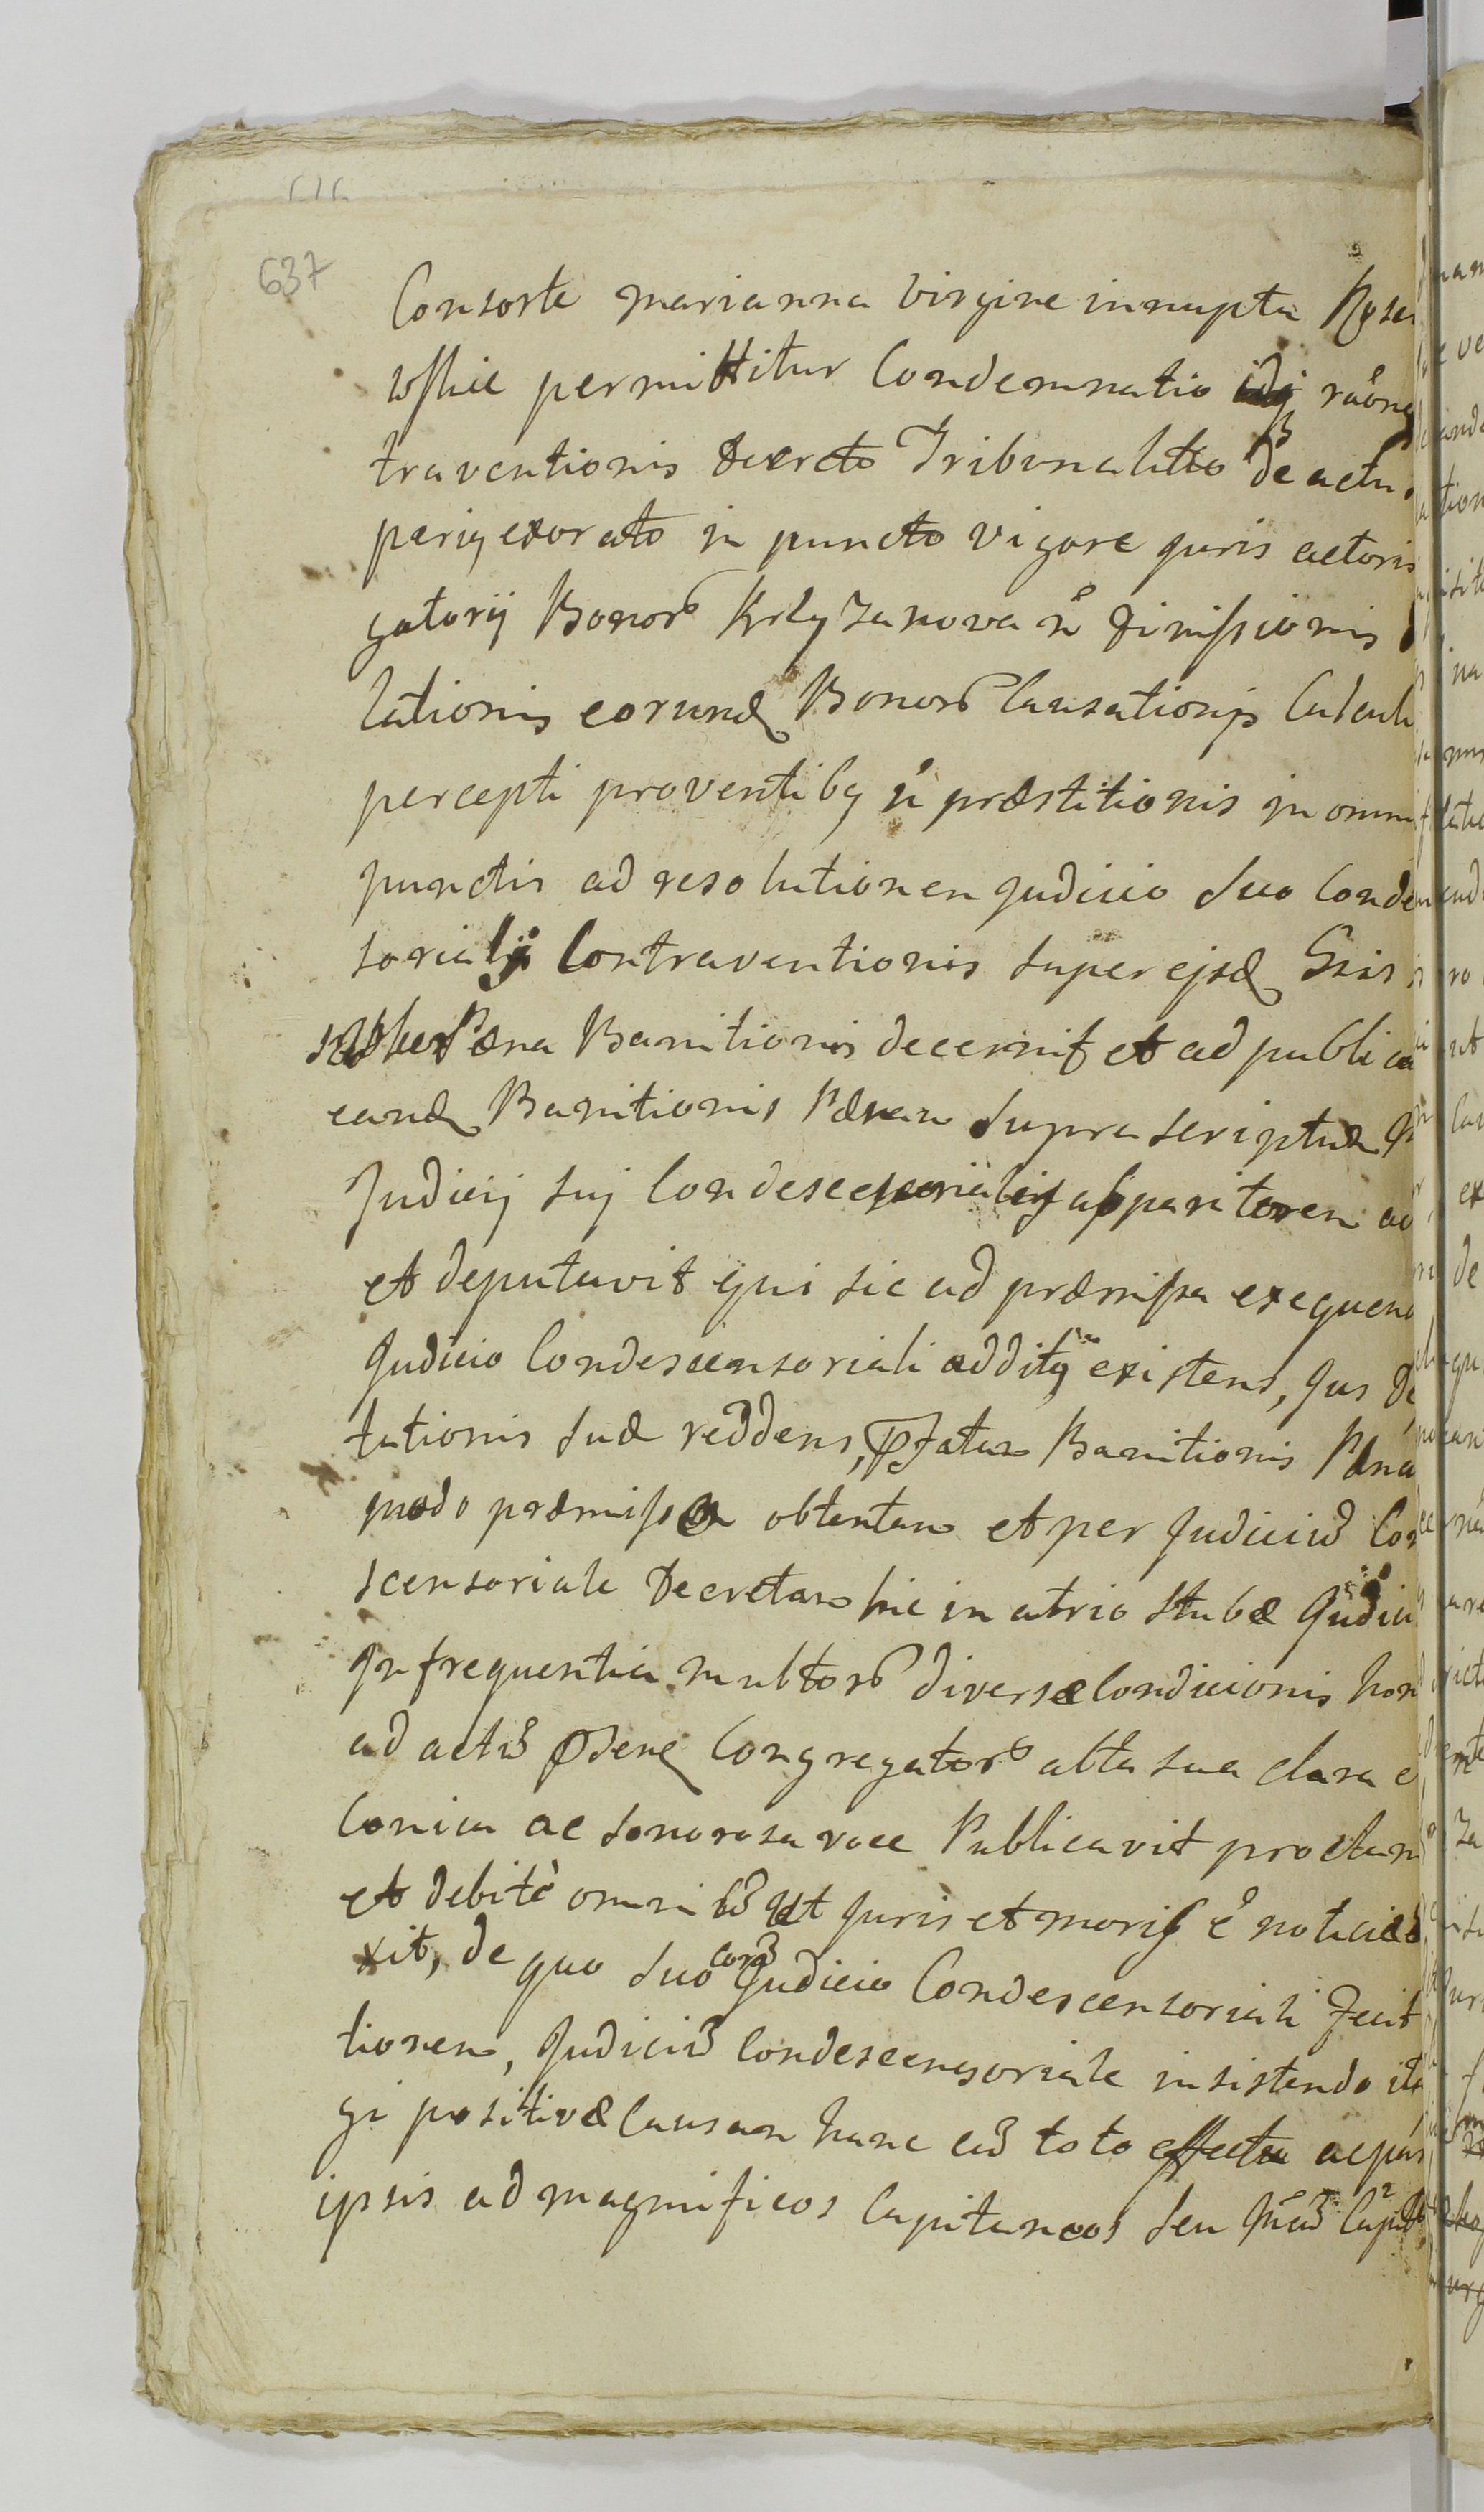 637
Consorte Marianna Virgine innupta
wskie permittitur Condemnatio idq raone
traventionis decreto Tribunalitio de actu
partij exorato in puncto vigore Juris actoris
gatorij Bonor Krlyzanova n dimissionis
lationis eorund Bonor Causationis Calculi
percepti proventibq n præstitionis in omni
punctis ad resolutionem Judicio suo Conde
sorialij Contraventionis super ejsd Gsis
Pæna Banitionis decernit et ad publica
eand Banitionis Pænam supra scriptam
Judicij suj Condescensorialis apparitorem
et deputavit qui sic ad præmissa exequen
Judicio Condescensoriali additq existens, Jus de
tationis suæ reddens, pfatam Banitionis Pæna
modo præmisso obtentam et per Judiciu Con
scensoriale Decretam hic in atrio stubæ Judici
In frequentia multor diversæ Condicionis hom
ad actu psene Congregator alta sua clara e
Conica ac sonorosa voce Publicavit proclam
et debite omnibu ut Juris et moris e noticiæ
xit, de quo suo cora Judicio Condescensoriali fecit
tionem, Judiciu Condescensoriale insistendo
gi positivæ Causam hanc cu toto effectu ac par
ipsis ad Magnificos Capitaneos seu